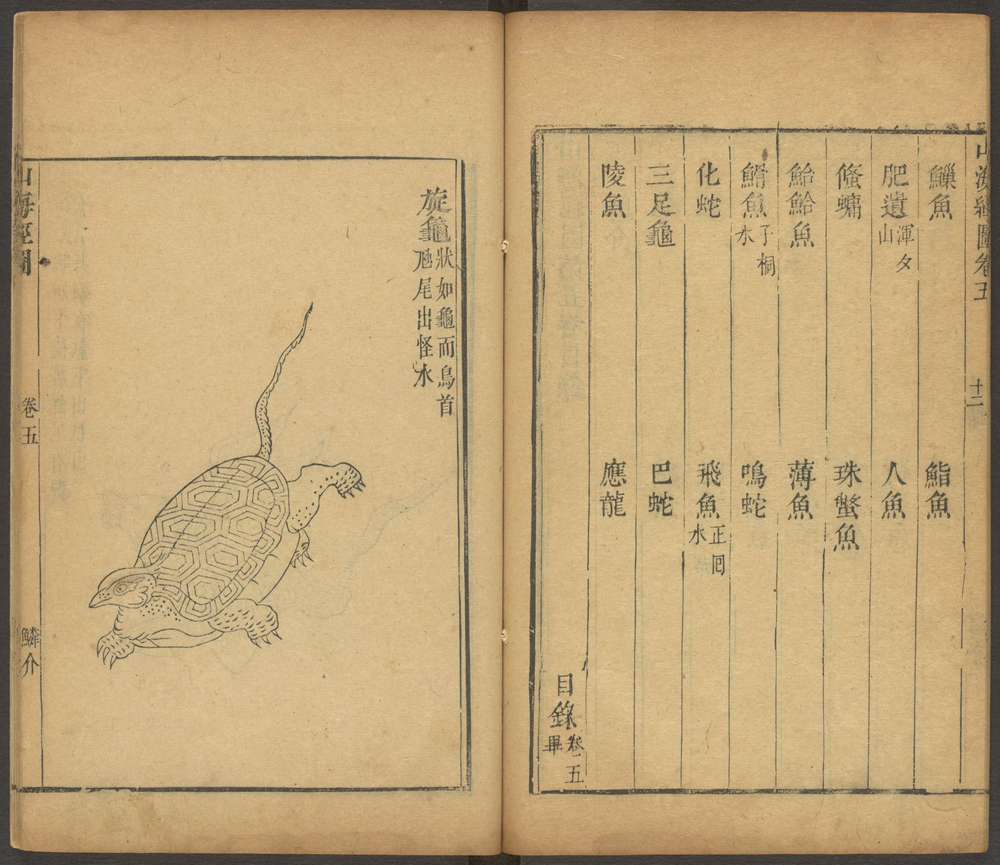 山海經圖卷五
十二
䲃魚 鮨魚
肥遺渾夕山 人魚
鯈䗤 珠蟞魚
鮯鮯魚 薄魚
䱻魚子桐水 鳴蛇
化蛇 飛魚正囘水
三足龜 巴蛇
陵魚 應龍
目錄卷五畢
旋龜狀如龜而鳥首
虺尾出怪水
山海經圖
卷五
鱗介